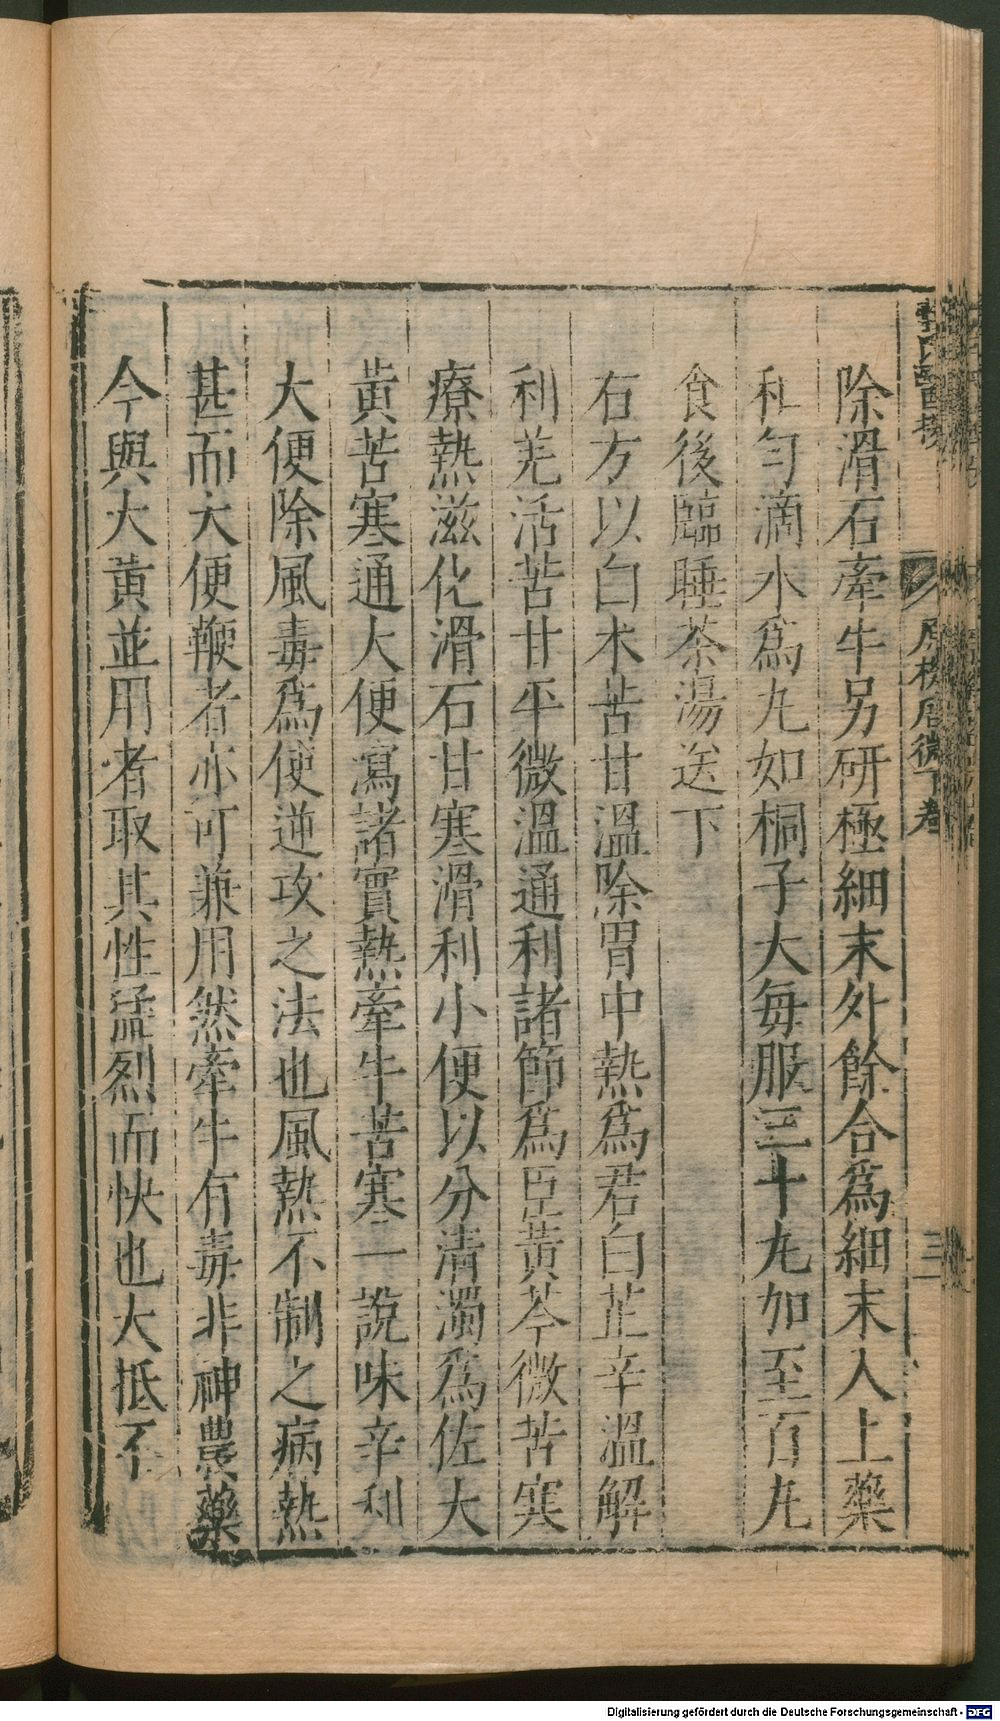 除滑石牽牛另研極細末外餘合爲細末入上藥
和勻滴水爲丸如桐子大每服三十丸加至百丸
食後臨睡茶湯送下
右方以白朮苦甘溫除胃中熱爲君白芷辛溫解
利羌活苦甘平微溫通利諸節爲臣黃芩微苦寒
療熱滋化滑石甘寒滑利小便以分清濁爲佐大
黃苦寒通大便瀉諸實熱牽牛苦寒一說味辛利
大便除風毒爲使逆攻之法也風熱不制之病熱
甚而大便鞕者亦可兼用然牽牛有毒非神農藥
今與大黃並用者取其性猛烈而快也大抵不
Digitalisierung gefördert durch die Deutsche Forschungsgemeinschaft - DFG